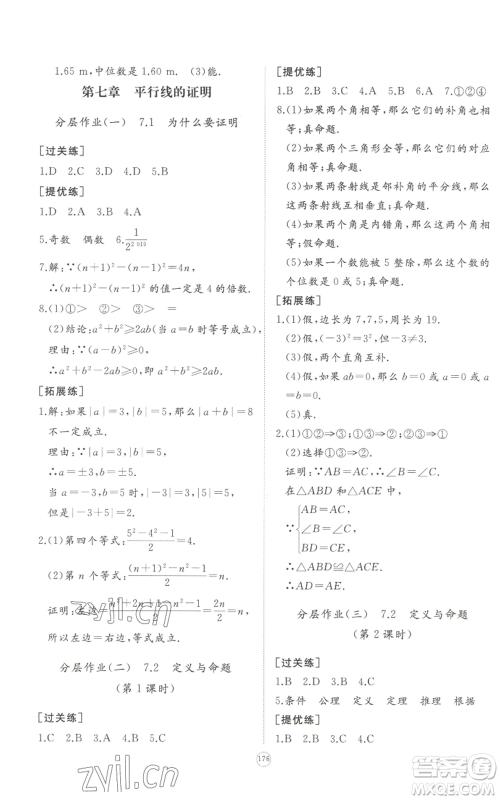 1.65 m,中位数是 1.60 m. (3)能.
第七章 平行线的证明
分层作业(一) 7.1 为什么要证明
[过关练]
1.D 2.C 3.D 4.C
[提优练]
1.B 2.D 3.B 4.A
5.奇数 偶数 6.1/2^2 019
7.解:∵(n+1)²-(n-1)²=4n,
∴(n+1)²-(n-1)²的值一定是 4 的倍数.
8.(1)> > > =
(2)结论:a²+b²≥2ab(当 a=b 时等号成立).
理由:∵a²+b²-2ab=(a-b)²≥0,
∴a²+b²≥2ab.
[拓展练]
1.解:如果|a|=3,|b|=5,那么|a+b|=8
不一定成立.
∵|a|=3,|b|=5,∴a=±3,b=±5.
当 a=3,b=-5 时,|a+b|=2.
但是|a|=3,|b|=5 成立.
2.(1)第四个等式:(5²-4²-1)/2=4.
(2)第 n 个等式:((n+1)²-n²-1)/2=n.
证明:左边=(n²+2n+1-n²-1)/2=2n/2=n,
所以左边=右边,等式成立.
分层作业(二) 7.2 定义与命题
(第 1 课时)
[过关练]
1.D 2.B 3.A 4.B 5.C
[提优练]
1.B 2.D 3.C 4.C 5.A 6.A 7.①②④
8.(1)如果两个角相等,那么它们的补角也相
等;真命题.
(2)如果两个三角形全等,那么它们的面积
相等;真命题.
(3)如果两条射线是邻补角的平分线,那么
这两条射线互相垂直;真命题.
(4)如果两个角是内错角,那么这两个角相
等;假命题.
(5)如果一个数能被 5 整除,那么这个数的
个位是 0 或 5;真命题.
[拓展练]
1.(1)假,边长为 5,7,7,周长为 19.
(2)假,(-3)²=3²,但-3≠3.
(3)假,两个直角互补.
(4)假,如果 ab=0,那么 a=0 或 b=0.
(5)真.
2.(1)①②⇒③;①③⇒②;②③⇒①.
(2)选择①③⇒②.
证明:∵AB=AC,∴∠B=∠C.
在△ABD 和△ACE 中,
∵{AB=AC,
∠B=∠C,
BD=CE,
∴△ABD≌△ACE.
∴AD=AE.
分层作业(三) 7.2 定义与命题
(第 2 课时)
[过关练]
1.B 2.D 3.B 4.C
5.条件 公理 定义 定理 推理 根据
[提优练]
1.D 2.B 3.C 4.C
176
zyjl.cn
zyjl.cn